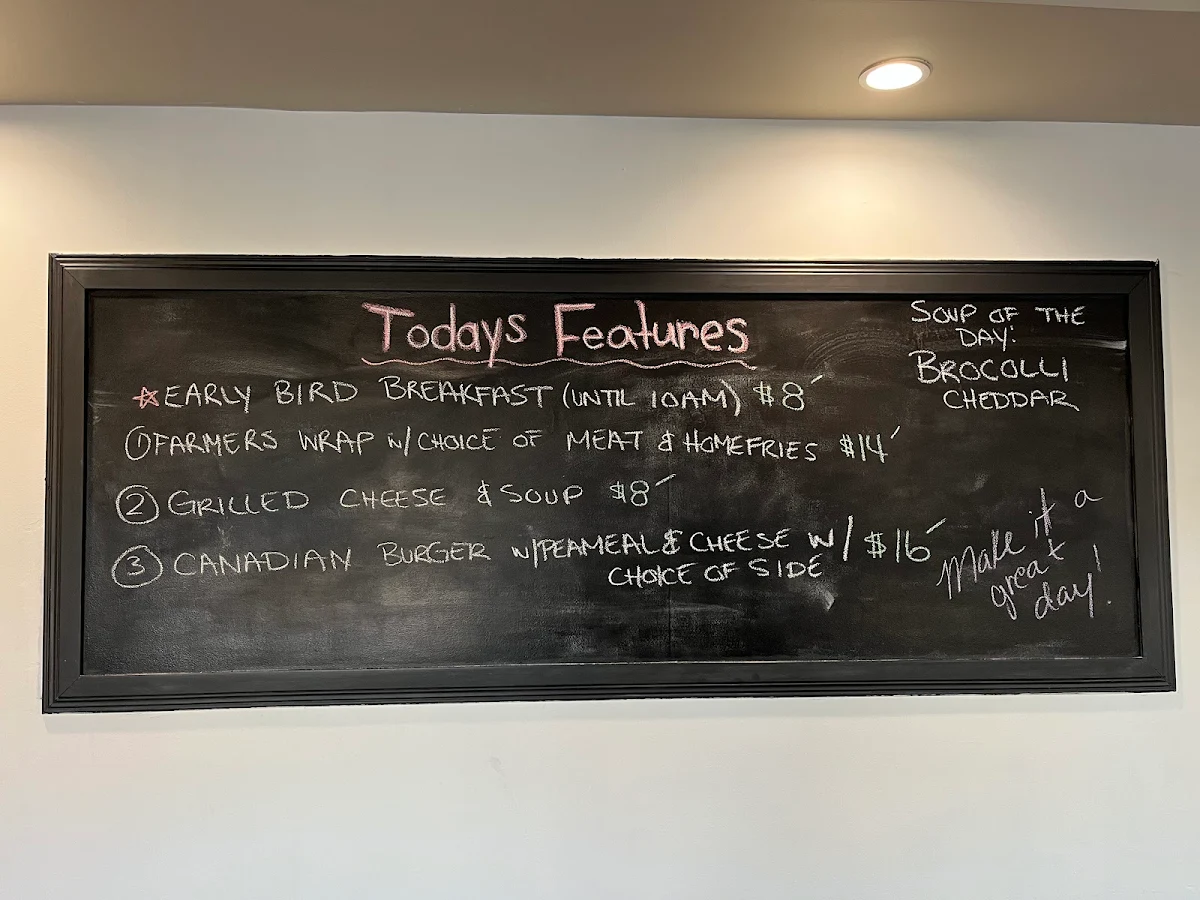 Todays Features
☆EARLY BIRD BREAKFAST (UNTIL 10AM) $8
①FARMERS WRAP W/CHOICE OF MEAT & HOMEFRIES $14
② GRILLED CHEESE & SOUP $8
③ CANADIAN BURGER W/PEAMEAL & CHEESE W/ $16
CHOICE OF SIDE
SOUP OF THE
DAY:
BROCOLLI
CHEDDAR
Make it a
great
day!